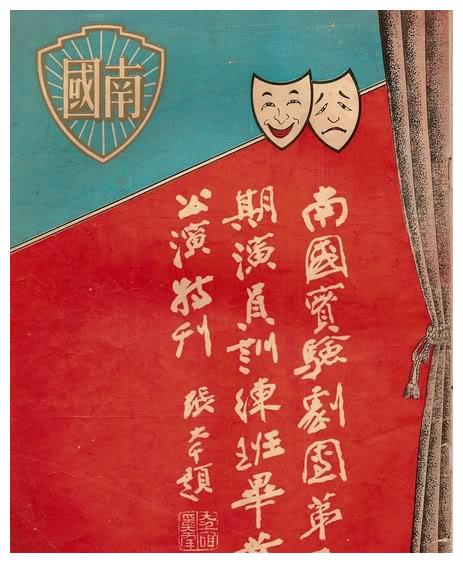 南國
南國實驗劇團第
期演員訓練班畢業
公演特刊
張
題